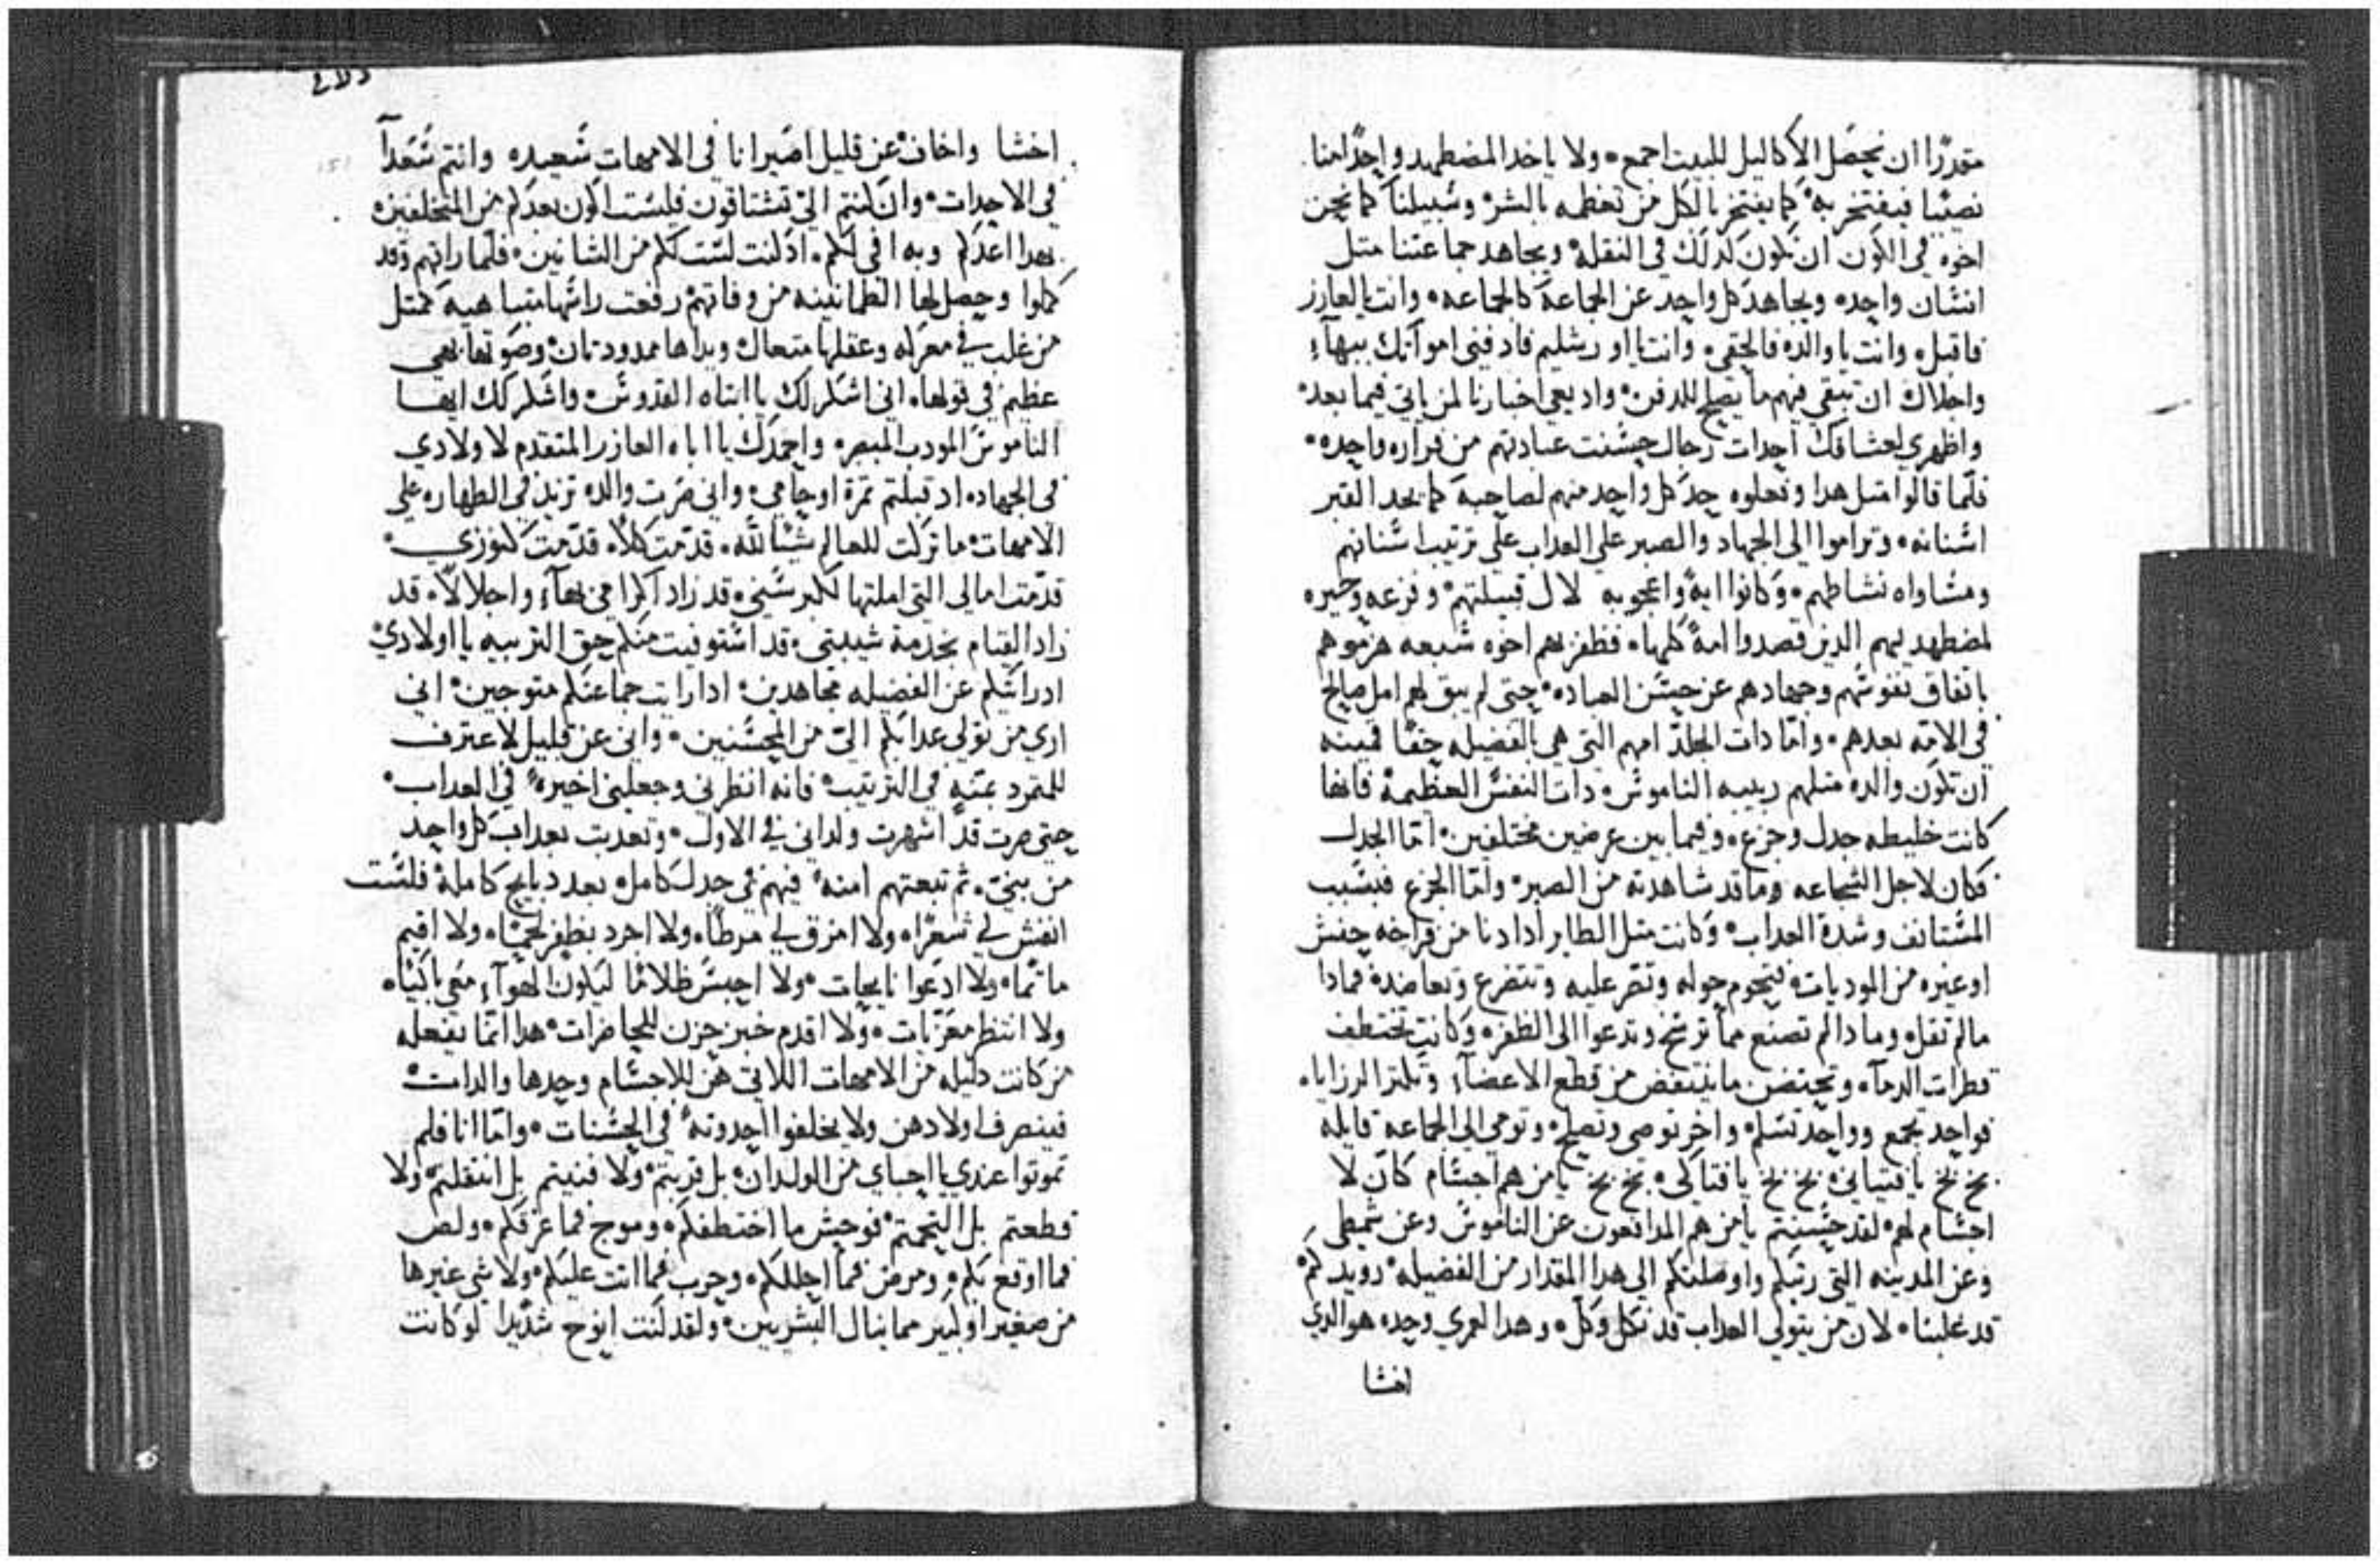 متعذرًا ان نحصل الاكاليل للبيت اجمع ه ولا ياخد المضطهد واحدًا منا
نصيبا فيفتخر به كما يفتخر بالكل من تعظمه بالشر وسبيلنا كما نحن
اخوه في الكون ان نكون كدلك في النقله ويجاهد جماعتنا متل
انسان واحده ويجاهد كل واحد عن الجماعة كالجماعه ه وانت يا لعازر
فاقبل ه وانت يا والده فالحقي ه وانت يا اورشليم فادفني امواتك ببهآء
واجلال ان تبقي فيهم ما يصلح للدفن ه واديعي اخبارنا لمن ياتي فيما بعد
واظهري لعشاقك اجدات رجال حسنت عبادتهم من قراره واحده ه
فلما قالوا متل هدا وفعلوه حد كل واحد منهم لصاحبه كما يحد الخنزير
اسنانه ه وتراموا الي الجهاد والصبر علي العداب علي ترتيب اسنانهم
ومساواه نشاطهم ه وكانوا ايةً واعجوبه لال قبيلتهم وفزعه وحيره
لمضطهديهم الدين قصدوا امةً كلها ه فظفر بهم اخوه سبعه هزموهم
باتفاق نفوسهم وجهادهم عن حسن العباده حتى لم يبق لهم امل صالح
في الامه بعدهم ه وامّا دات الجلد امهم التي هي بالفضيله حقًا قمينه
ان تكون والده متلهم ربيبه الناموس ه دات النفس العظيمة فانها
كانت خليطه جدل وجزع ه وفيما بين عرضين مختلفين ه امّا الجدل
فكان لاجل الشجاعه وما قد شاهدته من الصبر ه وامّا الجزع فبسبب
المستانف وشدة العداب ه وكانت متل الطاير ادا دنا من فراخه حنش
او غيره من الموديات ه فيحوم حوله وتصر عليه وتتضرع وتعاضد ه فمادا
ما لم تقل ه ومادا لم تصنع مما ترشح وتدعوا الى الظفر ه وكانت تختطف
قطرات الدمآ ه وتحتضن ما ينتفض من قطع الاعضآء وتلتز الرزايا ه
فواحد تجمع وواحد تسلم ه واخر توصي وتصلح ه وتومي الى الجماعه قايله
بخ بخ يا فتياني ه بخ بخ يا فتاكي ه بخ بخ يا من هم اجسام كان لا
اجسام لهم ه لقد حسنتم يا من هم المدافعون عن الناموس وعن شمطي
وعن المدينه التي ربتكم واوصلتكم الى هدا المقدار من الفضيله ه رويدكم
قد غلبنا ه لان من يتولى العداب قد نكل وكل ه وهدا لعمري وحده هو الدي
اخشا
اخشا واخاف عن قليل اصير انا في الامهات سعيده وانتم سعدآ
في الاحدات ه وان كنتم الي تشتاقون فلست اكون بعدكم من المتخلفين ه
بهدا اعدكم وبه افي لكم ه اد كنت لست لكم من الشانيين ه فلما راتهم وقد
كملوا وحصل لها الطمانينه من وفاتهم رفعت راسها متباهيه كمتل
من غلب في معركه وعقلها متعال ويداها ممدودتان وصوتها بهي
عظيم في قولها ه اني اشكر لك يا ابتاه القدوس ه واشكر لك ايها
الناموس المودب المبصر ه واحمدك يا اباه العازر المتقدم لاولادي
في الجهاده اد قبلتم تمرة اوجاعي ه واني صرت والده تزيد في الطهاره علي
الامهات ه ما تركت للعالم شيئًا لله ه قدمت كلاً ه قدمت كنوزي ه
قدمت امالي التي املتها لكبر سني ه قد زاد اكرامي بهآء واجلالا ه قد
زاد القيام بخدمة شيبتي ه قد استوفيت منكم حق التربيه يا اولادي
اد رايتكم عن الفضيله مجاهدين ه اد رايت جماعتكم متوجين ه اني
اري من تولي عدابكم اليّ من المحسنين ه واني عن قليل لاعترف
للمتمرد بمنّه في الترتيب فانه انظرني وجعلني اخيره في العداب ه
حتى صرت قد اشهرت ولداني في الاول ه وتعدبت بعداب كل واحد
من بنيّ ه ثم تبعتهم امنه فيهم في جدل كامل ه بعد دبايح كاملة فلست
انفش لي شعرًا ه ولا امزق لي مرطًا ه ولا اجرد بظفر لحمًا ه ولا اقيم
ماتمًا ه ولا ادعوا نايحات ه ولا احبس ظلامًا ليكون الهوآء معي باكيًا ه
ولا انتظر معزيات ه ولا اقدم خبز حزن للحاضرات ه هدا انّما يفعله
من كانت دليله من الامهات اللاتي هن للاجسام وحدها والدات
فينصرف اولادهن ولا يخلفوا احدوته في الحسنات ه وامّا انا فلم
تموتوا عندي يا احباي من الولدان ه بل قربتم ه ولا فنيتم بل انتقلتم ه ولا
قطعتم بل التحمتم ه فوحش ما اختطفكم ه وموج فما غرقكم ه ولص
فما اوقع بكم ه ومرض فما احللكم ه وحرب فما اتت عليكم ه ولا شي غيرها
من صغير او كبير مما ينال البشريين ه ولقد كنت انوح شديدا لو كانت